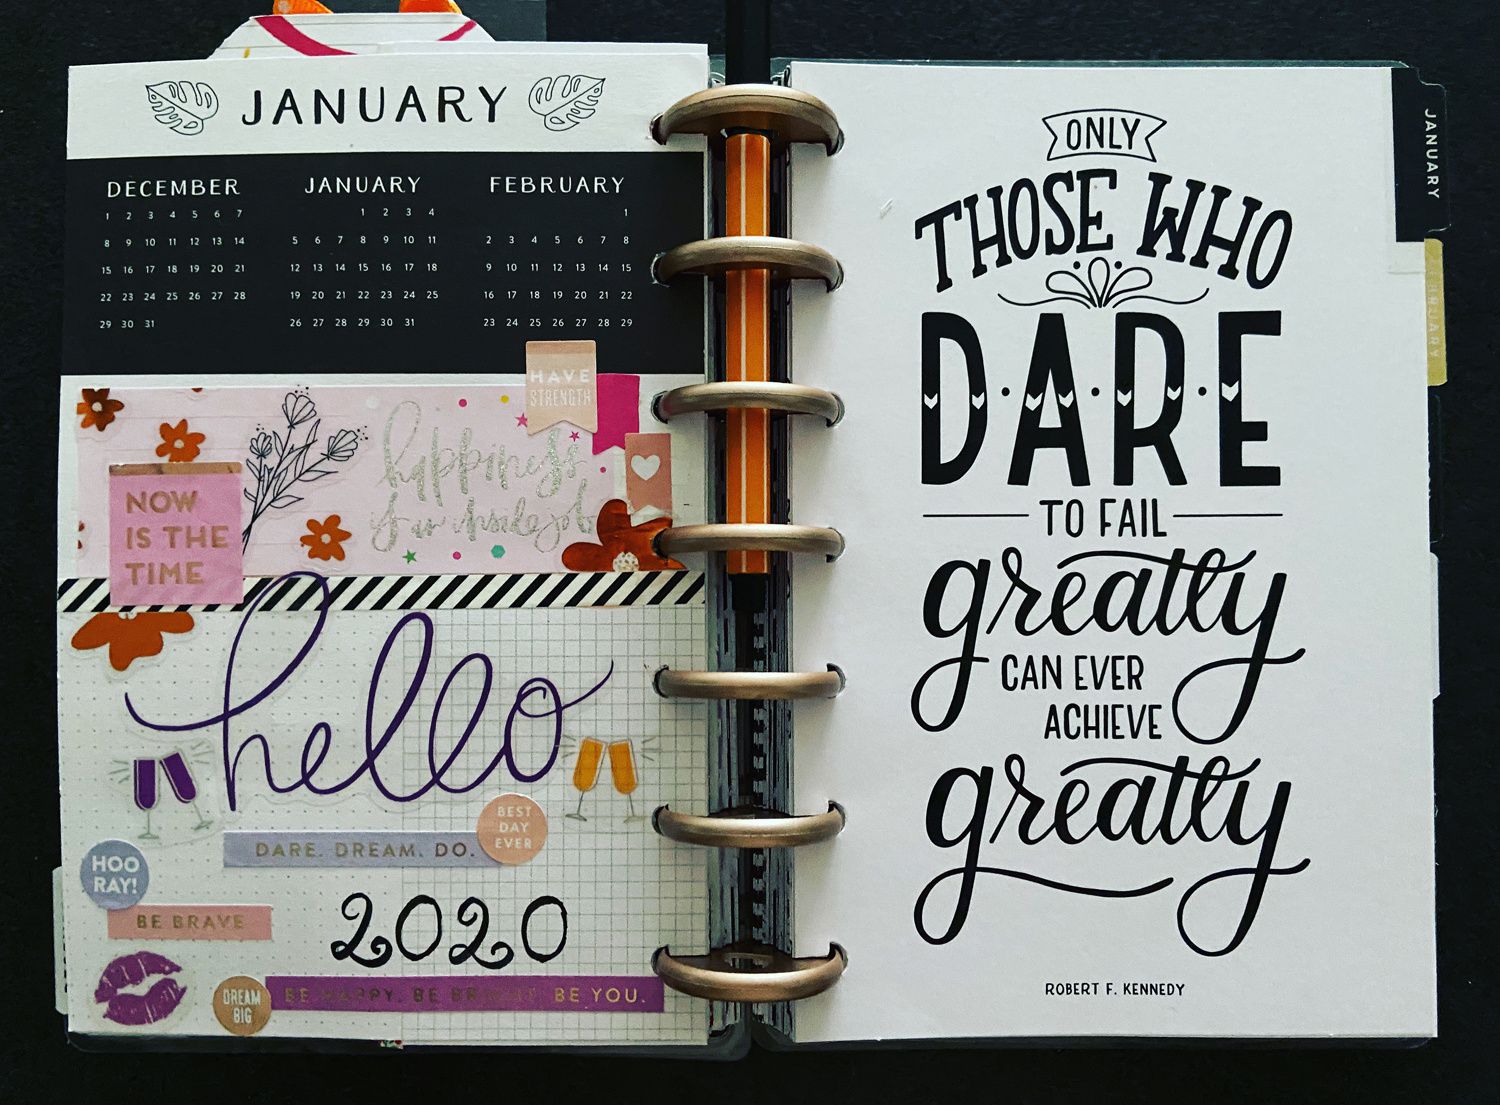 JANUARY
DECEMBER
1 2 3 4 5 6 7
8 9 10 11 12 13 14
15 16 17 18 19 20 21
22 23 24 25 26 27 28
29 30 31
JANUARY
1 2 3 4
5 6 7 8 9 10 11
12 13 14 15 16 17 18
19 20 21 22 23 24 25
26 27 28 29 30 31
FEBRUARY
1
2 3 4 5 6 7 8
9 10 11 12 13 14 15
16 17 18 19 20 21 22
23 24 25 26 27 28 29
HAVE
STRENGTH
happiness
is an inside job
NOW
IS THE
TIME
hello
BEST
DAY
EVER
DARE. DREAM. DO.
HOO
RAY!
BE BRAVE
2020
DREAM
BIG
BE HAPPY. BE BRIGHT. BE YOU.
ONLY
THOSE WHO
DARE
TO FAIL
greatly
CAN EVER
ACHIEVE
greatly
ROBERT F. KENNEDY
JANUARY
FEBRUARY